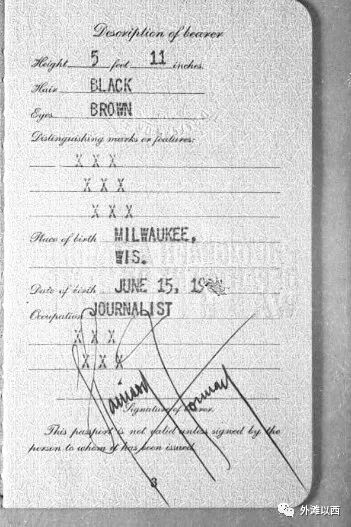 Description of bearer
Height 5 feet 11 inches.
Hair BLACK
Eyes BROWN
Distinguishing marks or features:
X X X
X X X
X X X
Place of birth MILWAUKEE,
WIS.
Date of birth JUNE 15, 19
Occupation JOURNALIST
X X X
X X X
Signature of bearer.
This passport is not valid unless signed by the
person to whom it has been issued.
8
外滩以西